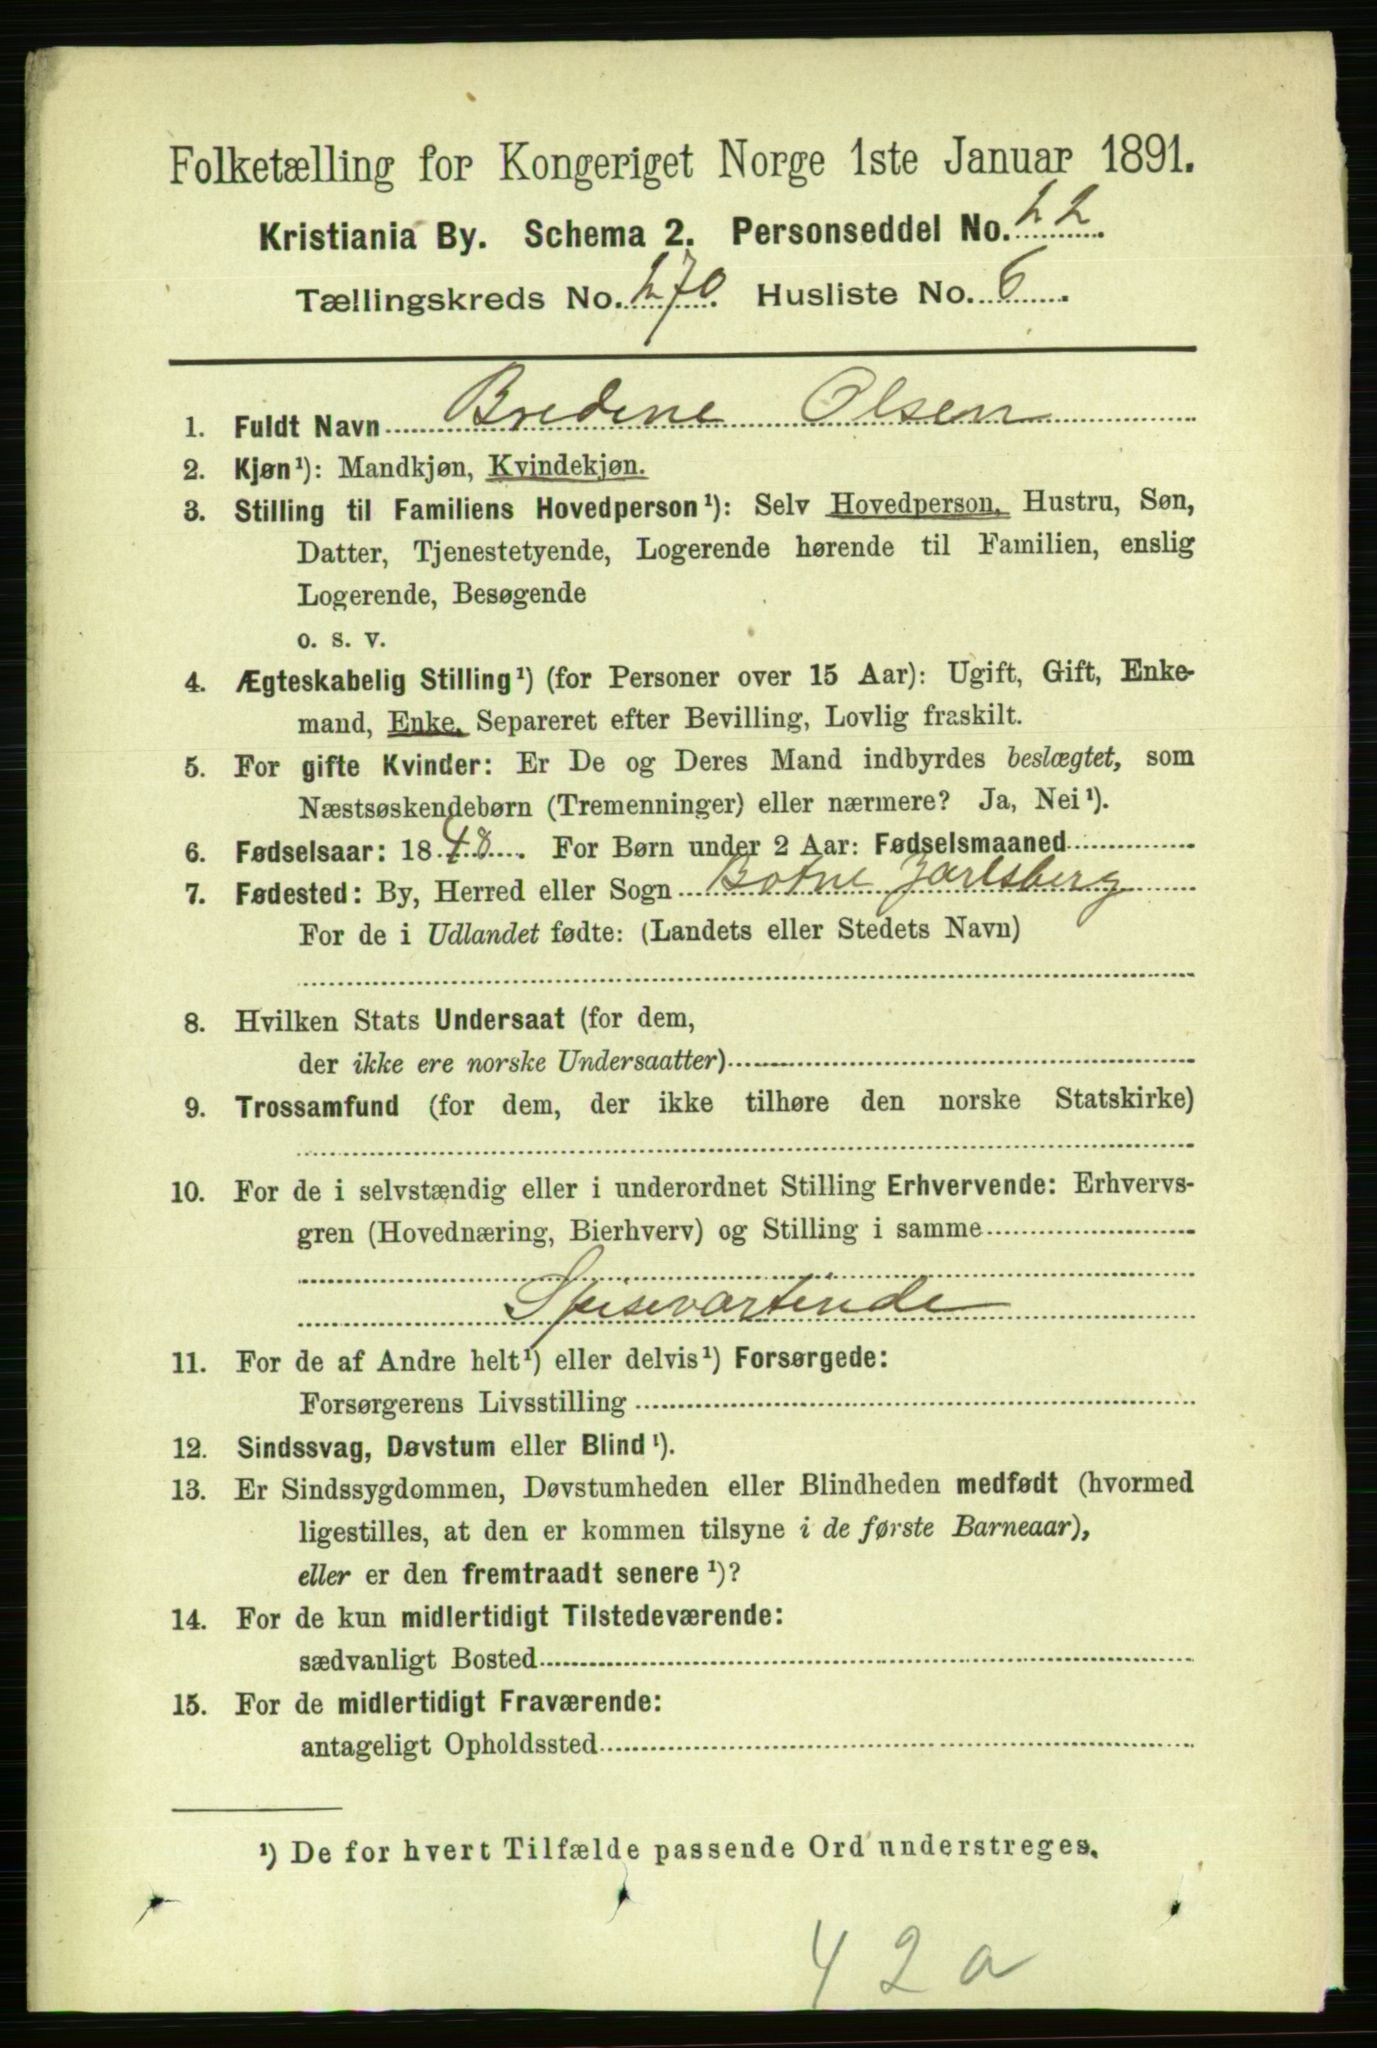 Folketælling for Kongeriget Norge 1ste Januar 1891.
Kristiania By. Schema 2. Personseddel No. 22
Tællingskreds No. 270 Husliste No. 6
1. Fuldt Navn Bredine Olsen
2. Kjøn¹): Mandkjøn, Kvindekjøn.
3. Stilling til Familiens Hovedperson¹): Selv Hovedperson, Hustru, Søn,
Datter, Tjenestetyende, Logerende hørende til Familien, enslig
Logerende, Besøgende
o. s. v.
4. Ægteskabelig Stilling¹) (for Personer over 15 Aar): Ugift, Gift, Enke-
mand, Enke, Separeret efter Bevilling, Lovlig fraskilt.
5. For gifte Kvinder: Er De og Deres Mand indbyrdes beslægtet, som
Næstsøskendebørn (Tremenninger) eller nærmere? Ja, Nei¹).
6. Fødselsaar: 1848. For Børn under 2 Aar: Fødselsmaaned
7. Fødested: By, Herred eller Sogn Botne Jarlsberg
For de i Udlandet fødte: (Landets eller Stedets Navn)
8. Hvilken Stats Undersaat (for dem,
der ikke ere norske Undersaatter)
9. Trossamfund (for dem, der ikke tilhøre den norske Statskirke)
10. For de i selvstændig eller i underordnet Stilling Erhvervende: Erhvervs-
gren (Hovednæring, Bierhverv) og Stilling i samme
Spisevartinde
11. For de af Andre helt¹) eller delvis¹) Forsørgede:
Forsørgerens Livsstilling
12. Sindssvag, Døvstum eller Blind¹).
13. Er Sindssygdommen, Døvstumheden eller Blindheden medfødt (hvormed
ligestilles, at den er kommen tilsyne i de første Barneaar),
eller er den fremtraadt senere¹)?
14. For de kun midlertidigt Tilstedeværende:
sædvanligt Bosted
15. For de midlertidigt Fraværende:
antageligt Opholdssted
¹) De for hvert Tilfælde passende Ord understreges.
42a